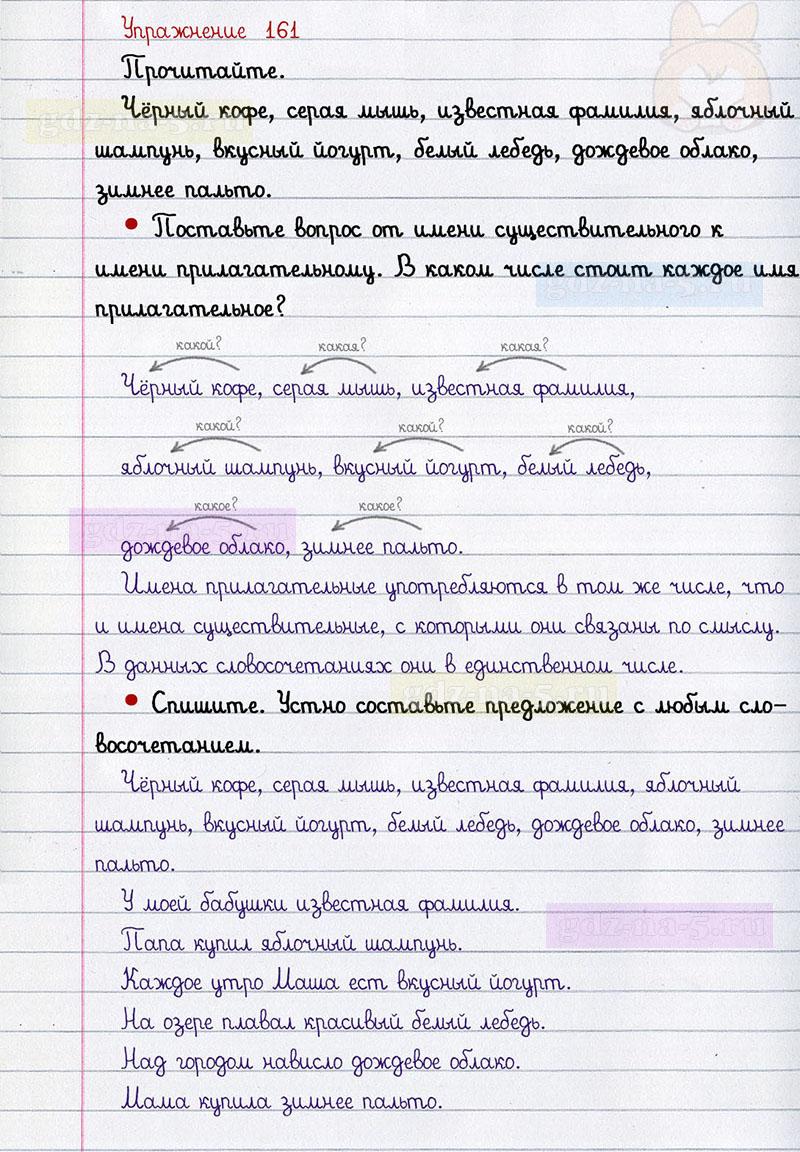 Упражнение 161
Прочитайте.
Чёрный кофе, серая мышь, известная фамилия, яблочный
gdz-na-5.ru
шампунь, вкусный йогурт, белый лебедь, дождевое облако,
зимнее пальто.
• Поставьте вопрос от имени существительного к
имени прилагательному. В каком числе стоит каждое имя
gdz-na-5.ru
прилагательное?
какой? какая? какая?
Чёрный кофе, серая мышь, известная фамилия,
какой? какой? какой?
яблочный шампунь, вкусный йогурт, белый лебедь,
какое? какое?
gdz-na-5.ru
дождевое облако, зимнее пальто.
Имена прилагательные употребляются в том же числе, что
и имена существительные, с которыми они связаны по смыслу.
В данных словосочетаниях они в единственном числе.
gdz-na-5.ru
• Спишите. Устно составьте предложение с любым сло-
восочетанием.
Чёрный кофе, серая мышь, известная фамилия, яблочный
шампунь, вкусный йогурт, белый лебедь, дождевое облако, зимнее
пальто.
У моей бабушки известная фамилия.
gdz-na-5.ru
Папа купил яблочный шампунь.
Каждое утро Маша ест вкусный йогурт.
На озере плавал красивый белый лебедь.
Над городом нависло дождевое облако.
Мама купила зимнее пальто.